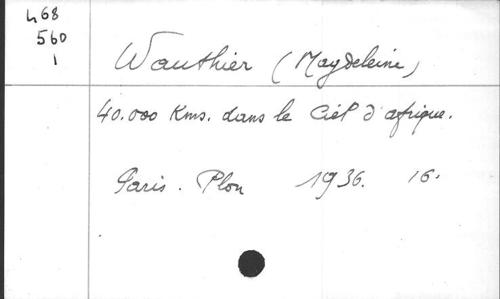 468
560
1
Wauthier (Magdeleine)
40.000 Kms. dans le Ciel d'afrique.
Paris. Plon 1936. 16.